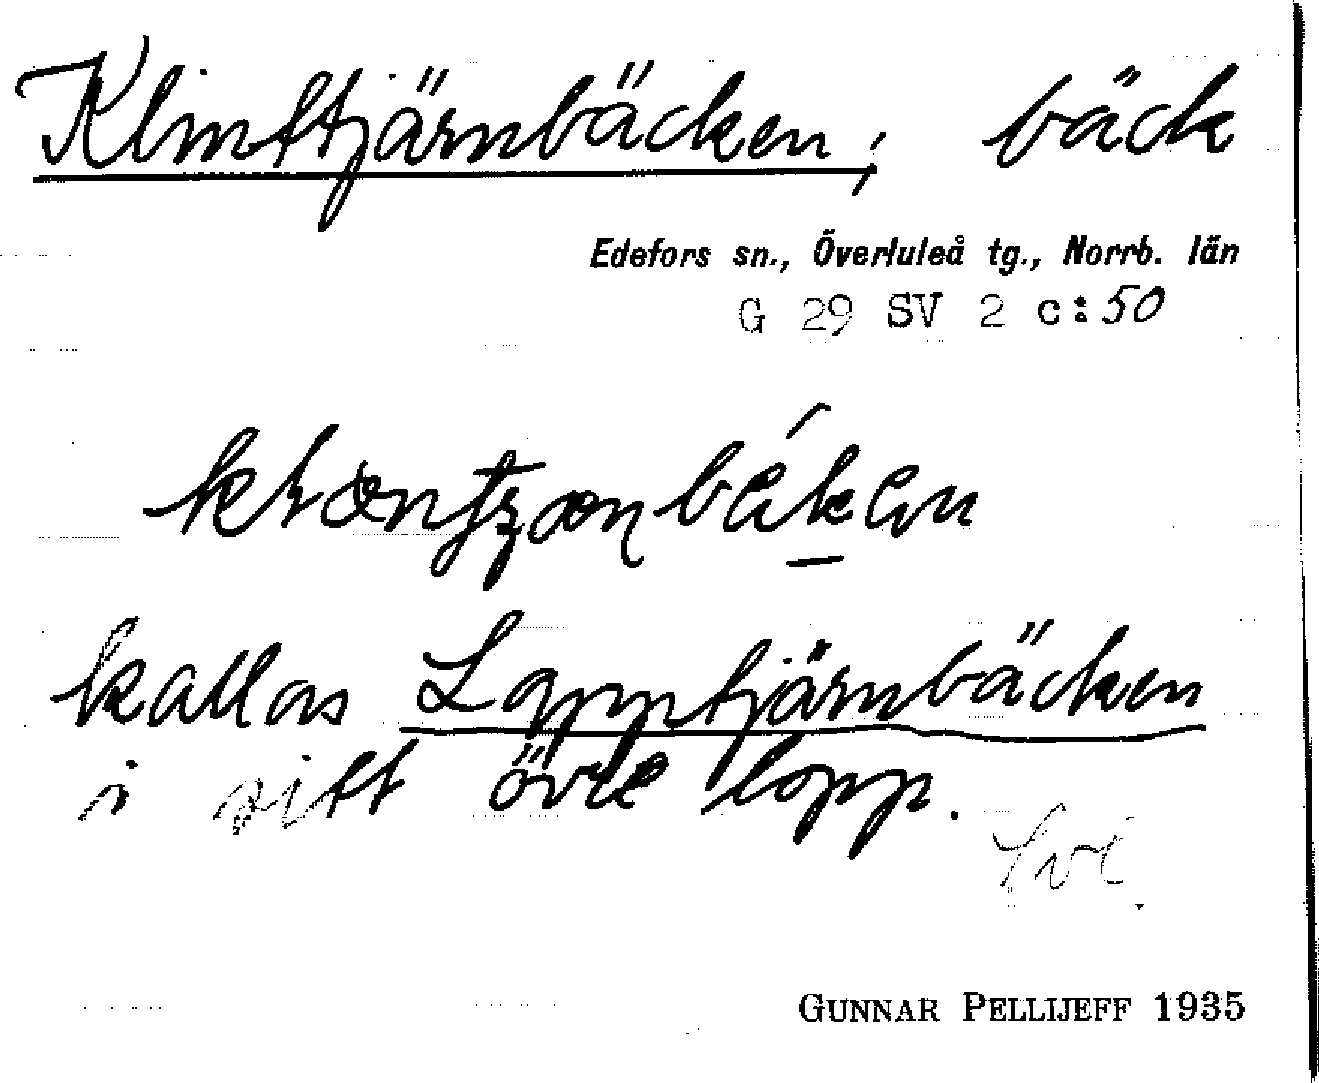 Klinttjärnbäcken; bäck
Edefors sn., Överluleå tg., Norrb. län
G 29 SV 2 c:50
kallas Lapptjärnbäcken
i sitt övre lopp.
GUNNAR PELLIJEFF 1935